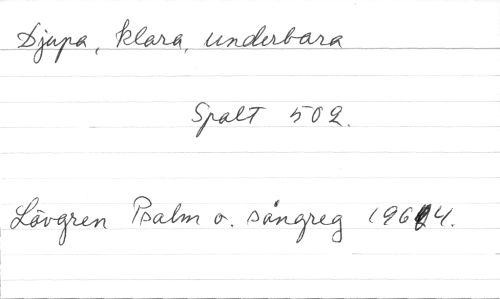 Djupa, klara, underbara
Spalt 502.
Lövgren Psalm o. sångreg 1964.